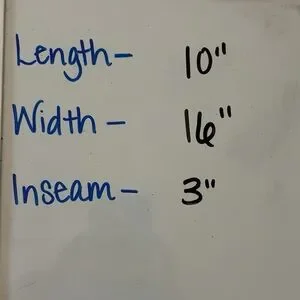 Length- 10"
Width- 16"
Inseam- 3"